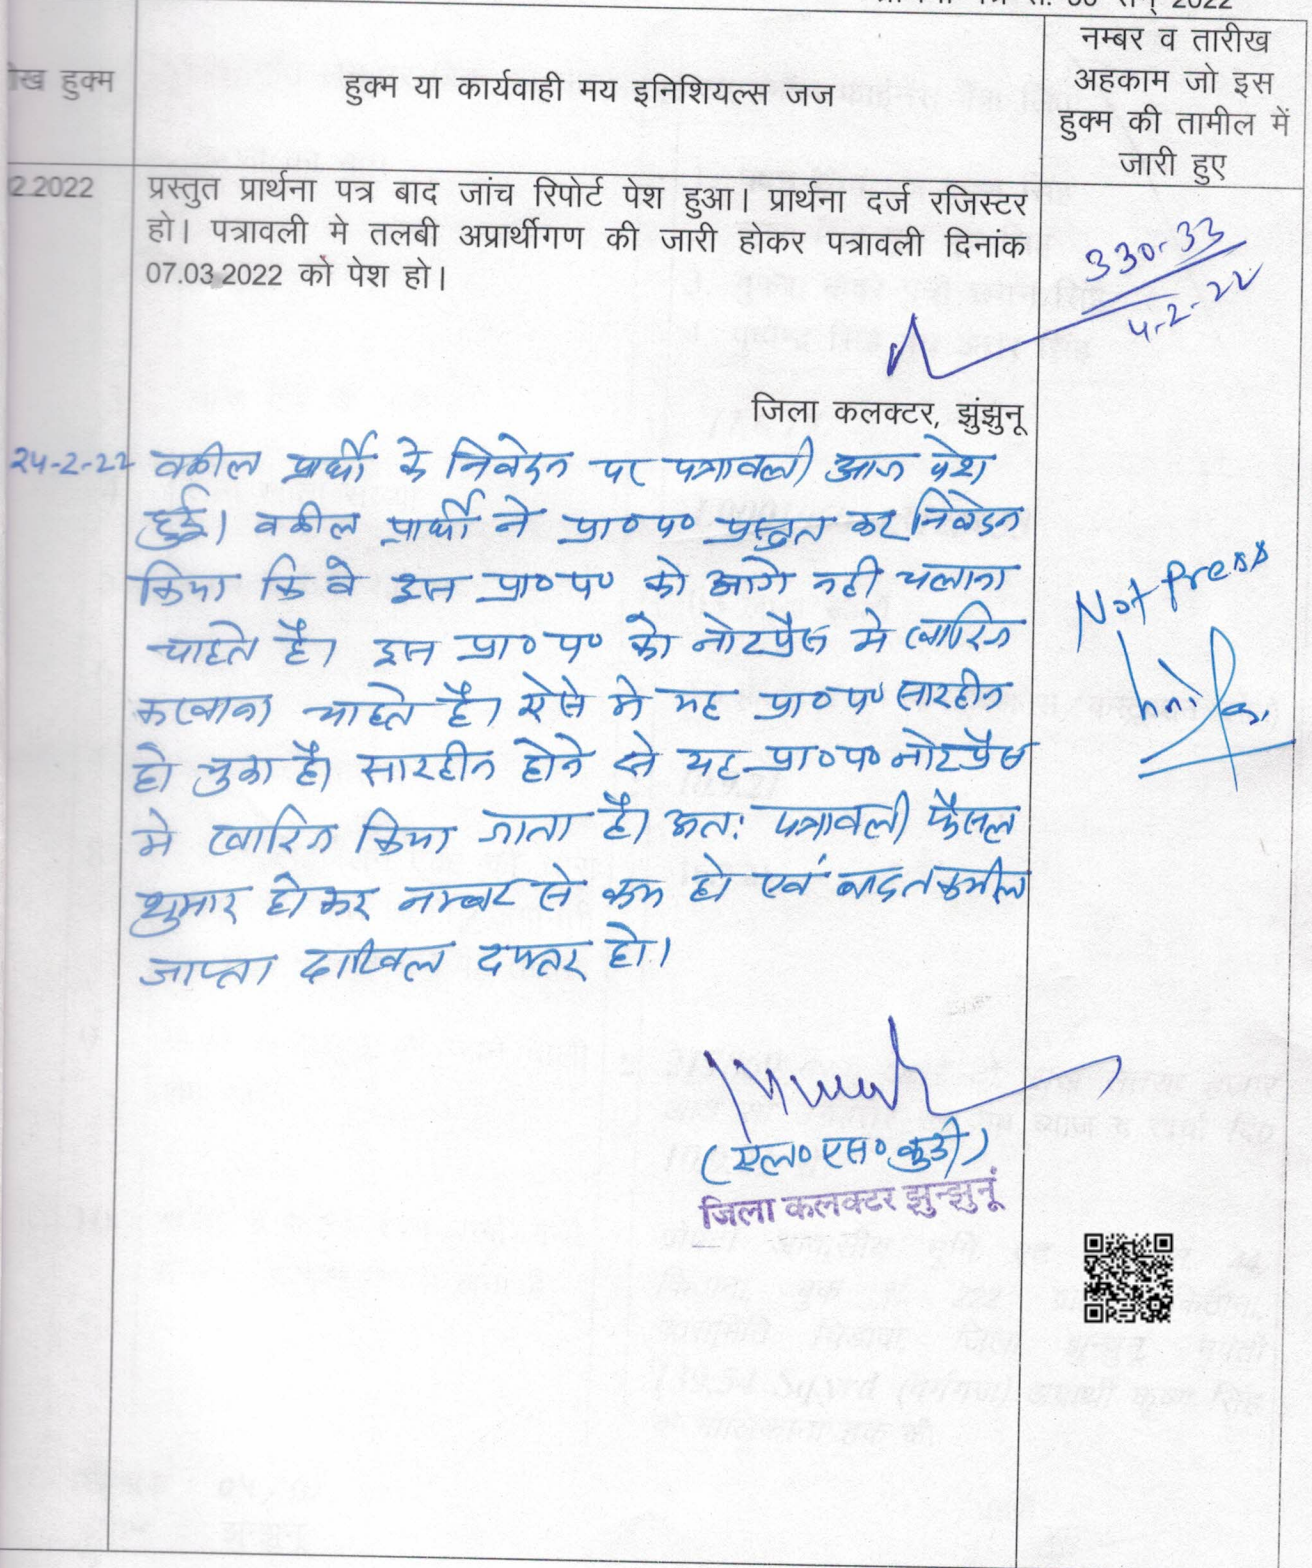 2022
नम्बर व तारीख
अहकाम जो इस
हुक्म की तामील में
जारी हुए
हुक्म या कार्यवाही मय इनिशियल्स जज
हुक्म
2.2022
प्रस्तुत प्रार्थना पत्र बाद जांच रिपोर्ट पेश हुआ। प्रार्थना दर्ज रजिस्टर
हो। पत्रावली मे तलबी अप्रार्थीगण की जारी होकर पत्रावली दिनांक
07.03.2022 को पेश हो।
330-33
4-2-22
जिला कलक्टर, झुंझुनू
24-2-22 वकील प्रार्थी के निवेदन पर पत्रावली आज पेश
हुई। वकील प्रार्थी ने प्रा० प० प्रस्तुत कर निवेदन
किया कि वे इस प्रा० प० को आगे नही चलाना
चाहते है। इस प्रा० प० को नोटप्रैस मे खारिज
करवाना चाहते है। ऐसे मे यह प्रा० प० सारहीन
हो चुका है। सारहीन होने से यह प्रा० प० नोटप्रैस
मे खारिज किया जाता है। अतः पत्रावली फैसल
शुमार होकर नम्बर से कम हो एवं बाद तकमील
जाप्ता दाखिल दफ्तर हो।
Not Press
(एल० एस० कुडी)
जिला कलक्टर झुन्झुनूं